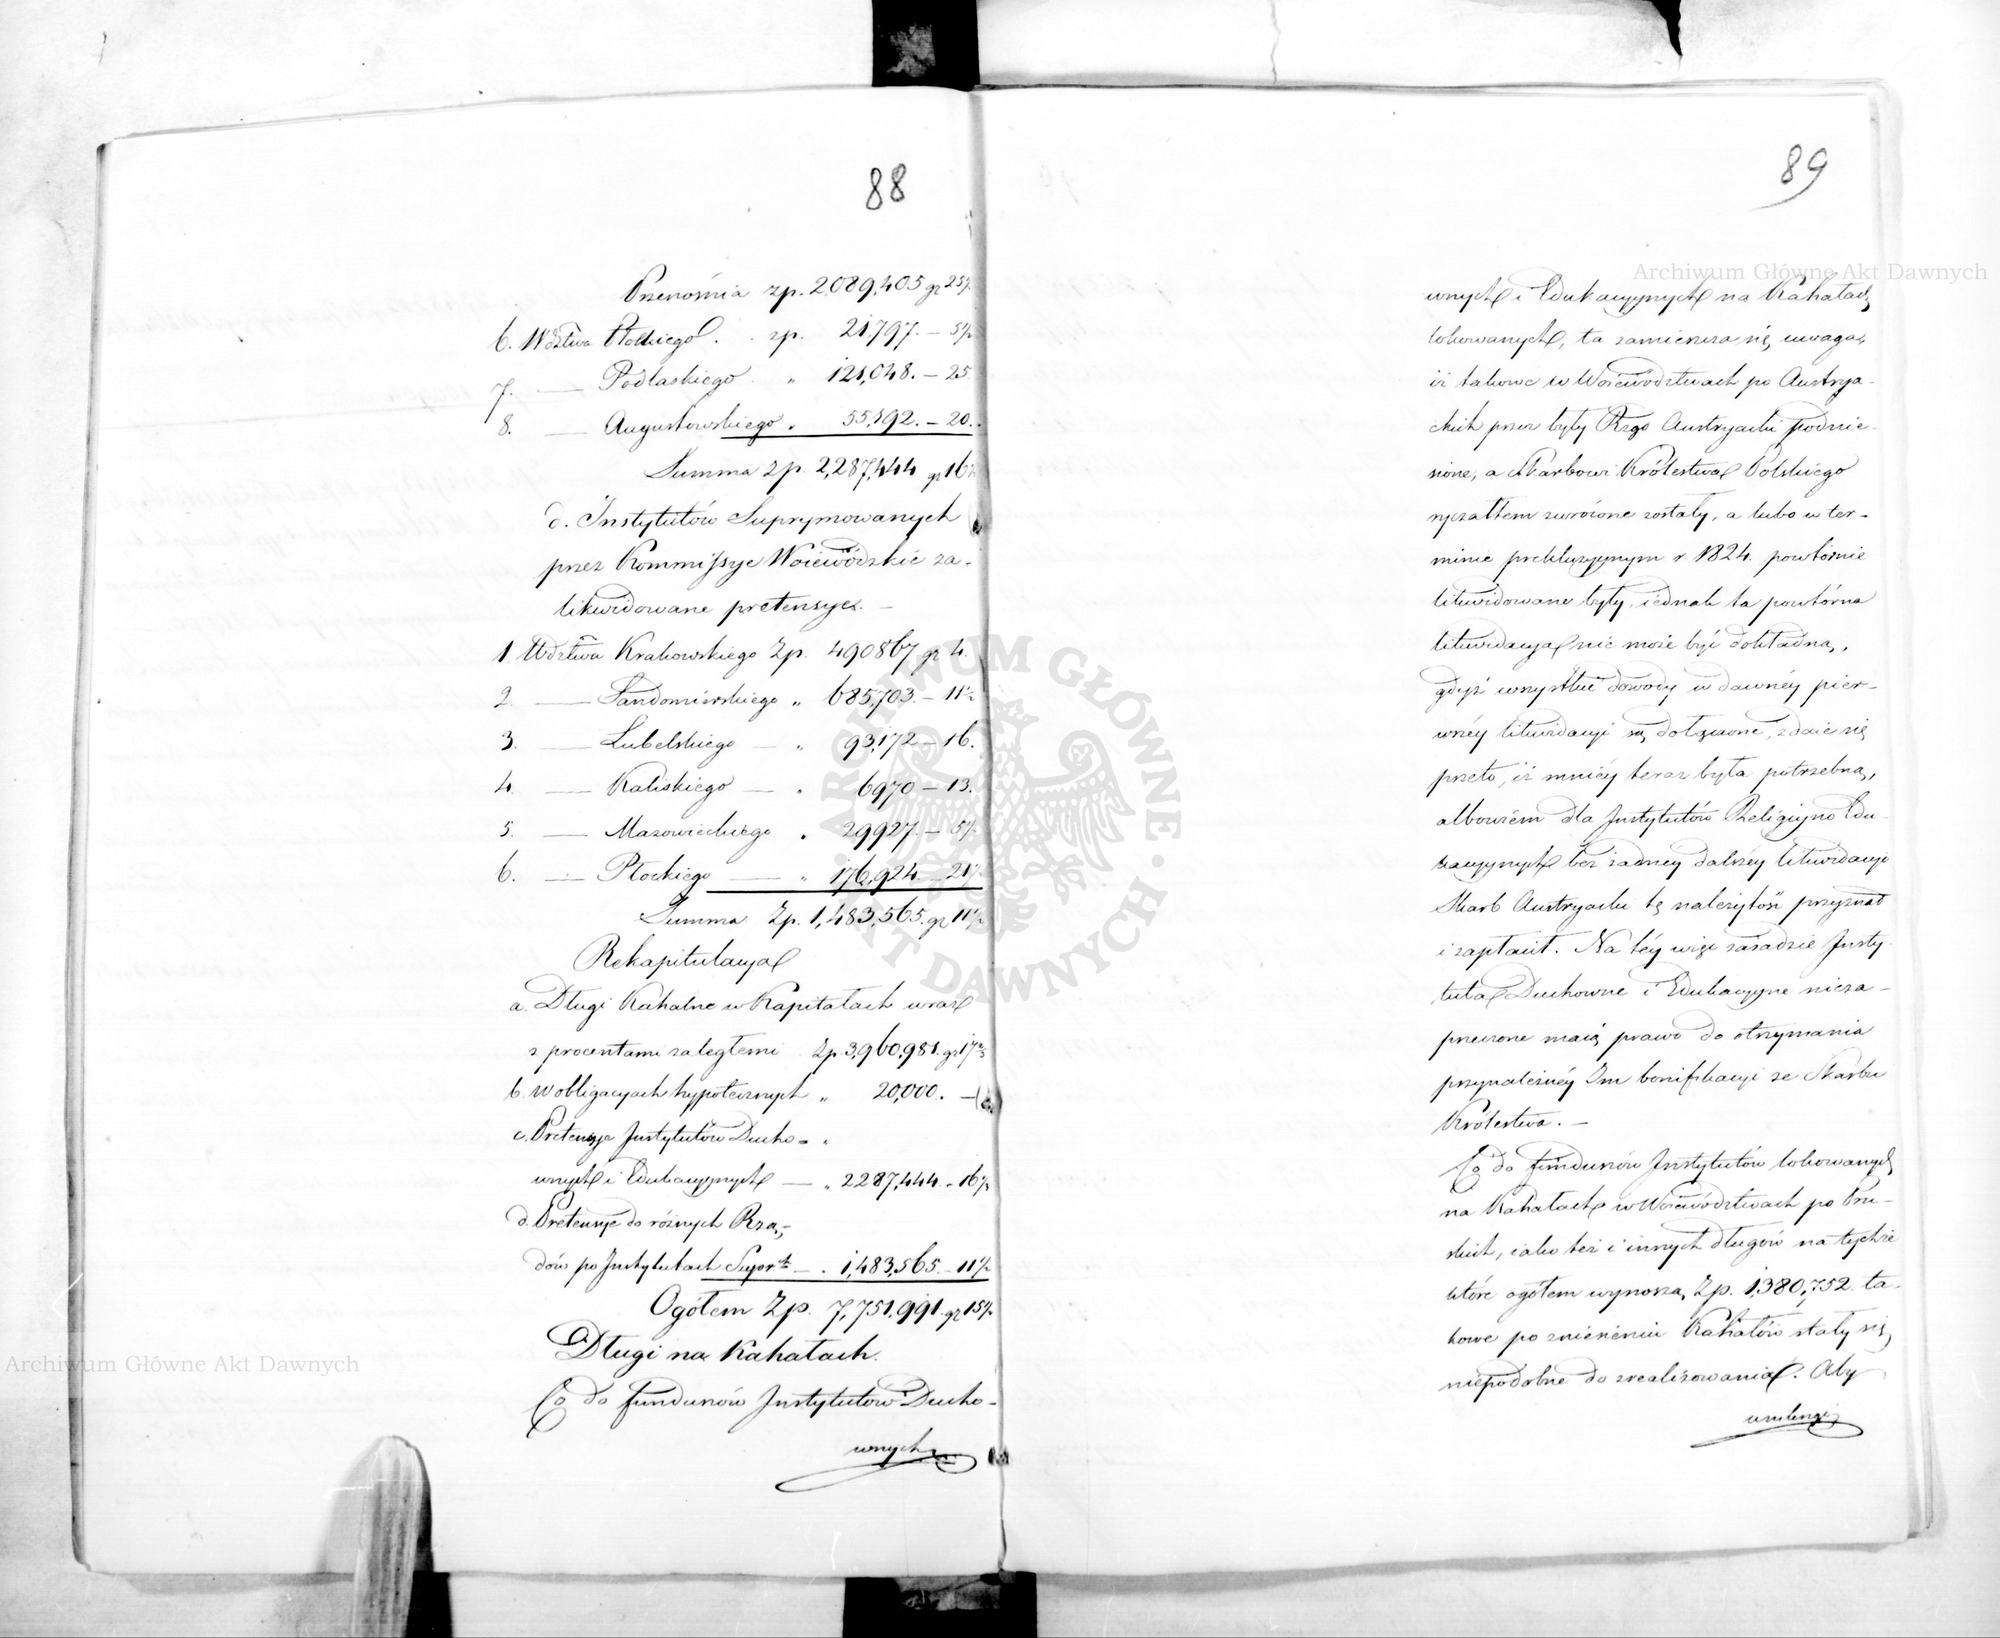 88
Przenośnia zp. 2.089,405 gr 25½
6. Wdztwa Płockiego . . zp. 21,797. – 5½
7. — Podlaskiego . „ 121,048. – 25
8. — Augustowskiego „ 55,192. – 20.
Summa zp. 2,287,444 gr 16½
d. Instytutów Suprymowanych
przez Kommissye Woiewódzkie za-
likwidowane pretensye. –
1. Wdztwa Krakowskiego Zp. 490867 gr 4.
2. — Sandomirskiego „ 685,703. – 11½
3. — Lubelskiego — „ 93,172 – 16.
4. — Kaliskiego — „ 6970 – 13.
5. — Mazowieckiego „ 29927. – 5½
6. — Płockiego — „ 176,924 – 21½
Summa Zp. 1,483,565. gr 11½
Rekapitulacya
a. Długi Kahalne w Kapitałach wraz
z procentami zaległemi Zp. 3,960,981. gr 17
b. w obligacyach hypotecznych „ 20,000. –
c. Pretensye Instytutów Ducho- „
wnych i Edukacyynych — „ 2287,444. – 16½
d. Pretensye do różnych Rzą-
dów po Instytutach Supr — „ 1,483,565. – 11½
Ogółem Zp. 7,751,991. gr 15½
Długi na Kahałach.
Co do funduszów Instytutów Ducho-
wnych
89
wnych i Edukacyynych na Kahałach
lokowanych, ta zamieszcza się uwaga,
iż takowe w Woiewództwach po Austrya-
ckich przez były Rząd Austryacki podnie-
sione, a Skarbowi Królestwa Polskiego
ryczałtem zwrócone zostały, a lubo w ter-
minie prekluzyynym r 1824. powtórnie
likwidowane były, iednak ta powtórna
likwidacya nie może być dokładną,
gdyż wszystkie dowody w dawnéy pier-
wszéy likwidacyi są dołączone, zdaie się
przeto, iż mniéy teraz była potrzebną,
albowiem dla Instytutów Religiyno Edu-
kacyynych bez żadney dalszéy likwidacyi
Skarb Austryacki tę należytość przyznał
i zapłacił. Na téy więc zasadzie Insty-
tuta Duchowne i Edukacyyne nieza-
przeczone maią prawo do otrzymania
przynależnéy Im bonifikacyi ze Skarbu
Królestwa. –
Co do funduszów Instytutów lokowanych
na Kahałach w Woiewództwach po Pru-
skich, iako też i innych długów na tychże
które ogółem wynoszą Zp. 1,380,752. ta-
kowe po zniesieniu Kahałów stały się
niepodobne do zrealizowania. Aby
Archiwum Główne Akt Dawnych
Archiwum Główne Akt Dawnych
ARCHIWUM GŁÓWNE AKT DAWNYCH